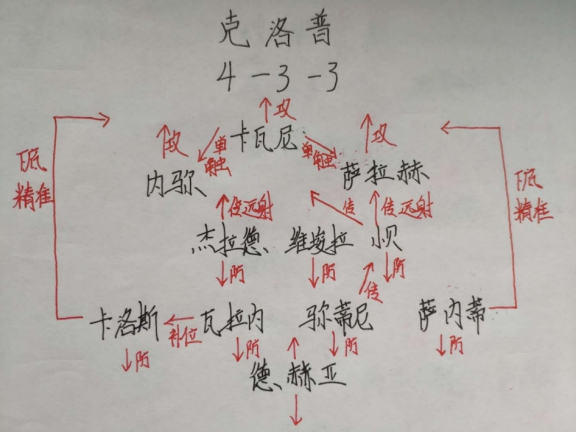 克洛普
4-3-3
攻
攻 单触 卡瓦尼 单触 攻
内马尔 萨拉赫
下底
精准
下底
精准
传远射 传 传远射
杰拉德 维埃拉 小贝
防 防 防
传
卡洛斯 补位 瓦拉内 马尔蒂尼 萨内蒂
防 防 防 防
德赫亚